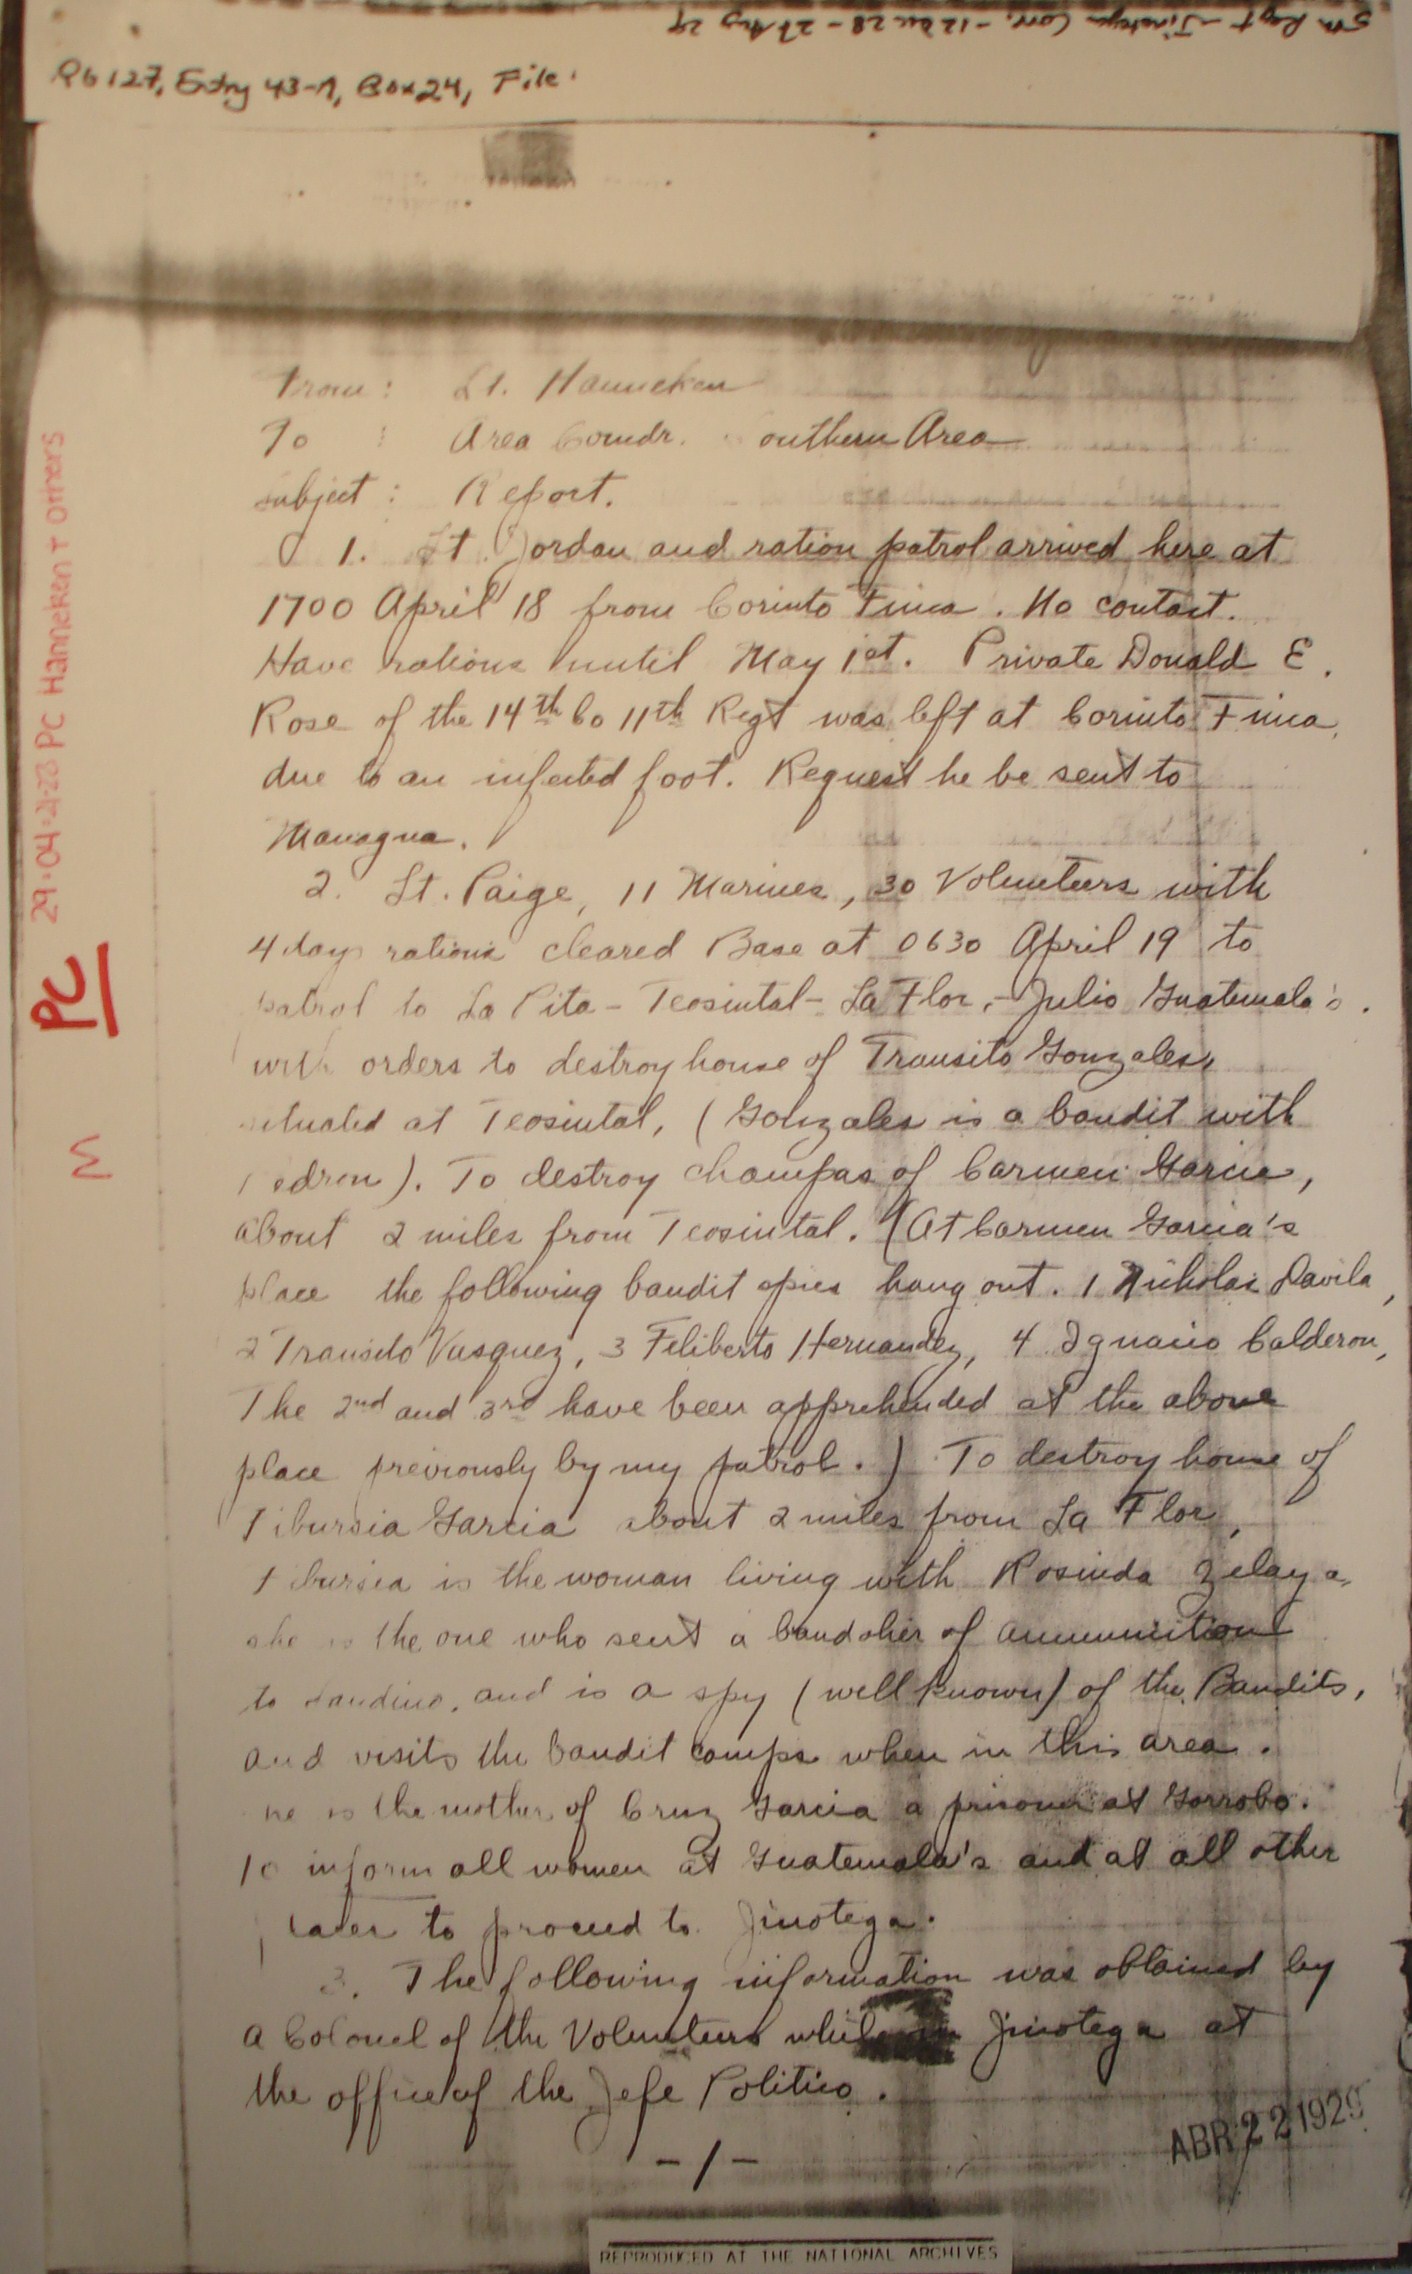 5th Regt - Jinotega Corr. - 12 Dec 28 - 26 Aug 29
RG 127, Entry 43-A, Box 24, File:
From: Lt. Hanneken
To : Area Comdr. outhern Area
ubject : Report.
1. Lt. Jordan and ration patrol arrived here at
1700 April 18 from Corinto Finca. No contact.
Have rations until May 1st. Private Donald E.
Rose of the 14th Co 11th Regt was left at Corinto Finca,
due to an infected foot. Request he be sent to
Managua.
2. Lt. Paige, 11 Marines, 30 Volunteers with
4 days rations cleared Base at 0630 April 19 to
patrol to La Pita - Teosintal - La Flor, - Julio Guatemala's.
with orders to destroy house of Transito Gonzales,
situated at Teosintal, (Gonzales is a bandit with
edron). To destroy champas of Carmen Garcia,
about 2 miles from Teosintal. (At Carmen Garcia's
place the following bandit spies hang out. 1 Nicholas Davila,
2 Transito Vasquez, 3 Filiberto Hernandez, 4 Ignacio Calderon,
The 2nd and 3rd have been apprehended at the above
place previously by my patrol.) To destroy house of
Tibursia Garcia about 2 miles from La Flor,
Tibursia is the woman living with Rosinda Zelaya,
she is the one who sent a bandolier of ammunition
to Sandino, and is a spy (well known) of the Bandits,
and visits the bandit camps when in this area.
he is the mother of Cruz Garcia a prisoner at Gorrobo.
To inform all women at Guatemala's and at all other
places to proceed to Jinotega.
3. The following information was obtained by
a Colonel of the Volunteers while Jinotega at
the office of the Jefe Politico.
-1-
ABR 22 1929
REPRODUCED AT THE NATIONAL ARCHIVES
PC
M
29.04.22 PC Hanneken + others